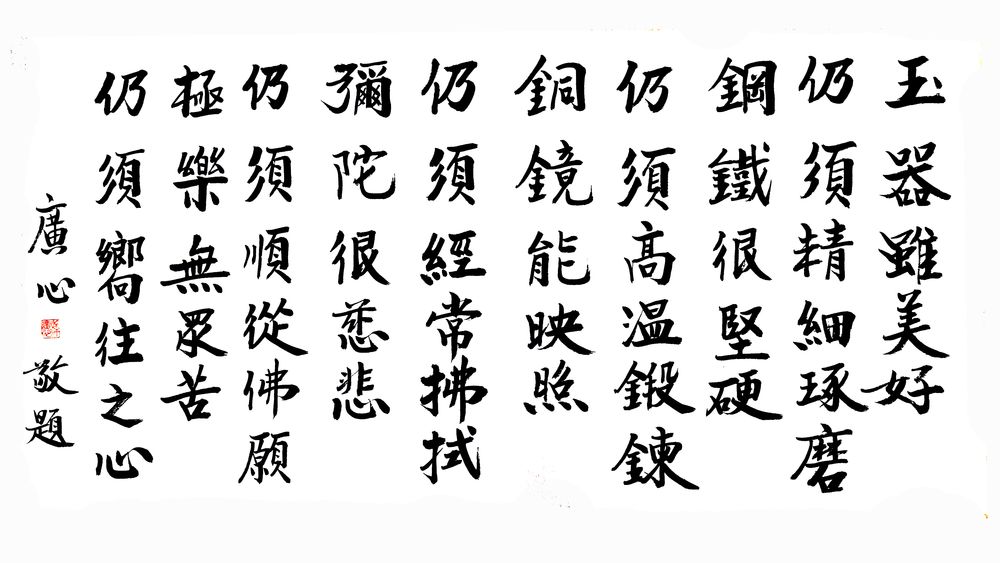 玉器雖美好
仍須精細琢磨
鋼鐵很堅硬
仍須高温鍛鍊
銅鏡能映照
仍須經常拂拭
彌陀很慈悲
仍須順從佛願
極樂無眾苦
仍須嚮往之心
廣心敬題